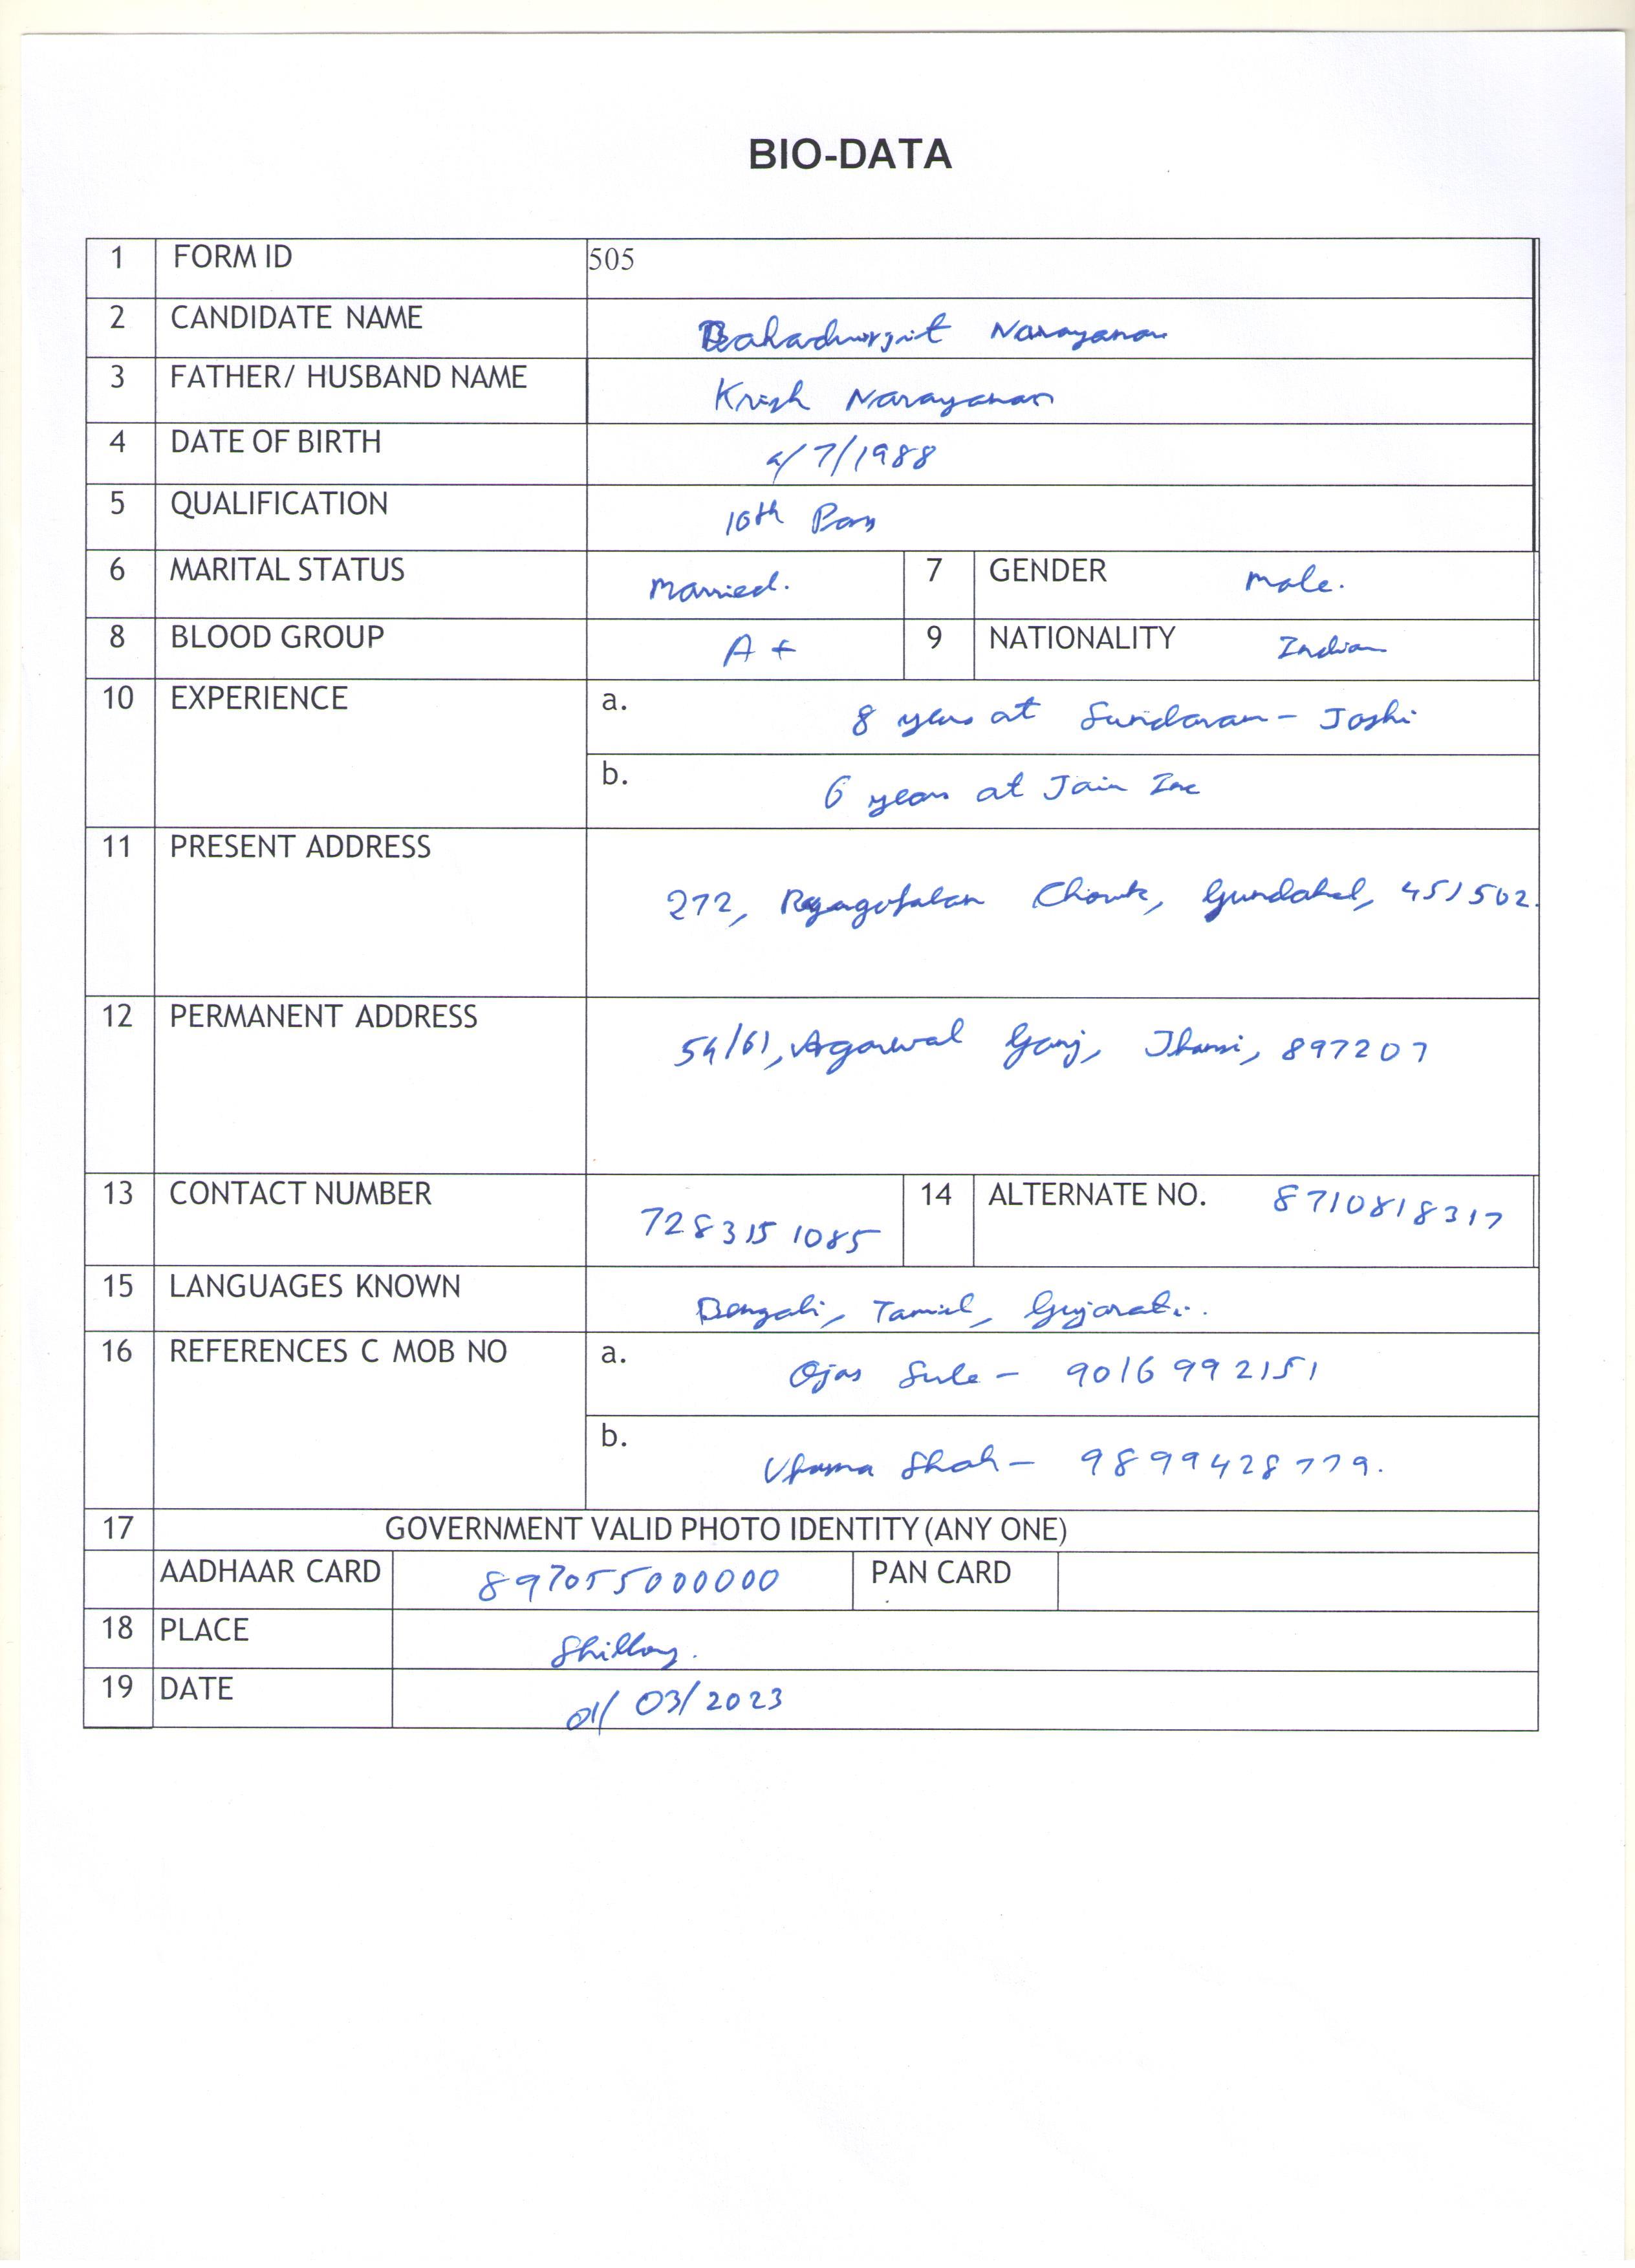 BIO-DATA
1 FORM ID 505
2 CANDIDATE NAME Bahadurjit Narayanan
3 FATHER/ HUSBAND NAME Krish Narayanan
4 DATE OF BIRTH 4/7/1988
5 QUALIFICATION 10th Pass
6 MARITAL STATUS Married. 7 GENDER Male.
8 BLOOD GROUP A+ 9 NATIONALITY Indian
10 EXPERIENCE a. 8 years at Sundaram - Joshi
b. 6 years at Jain Inc
11 PRESENT ADDRESS
272, Rajagopalan Chowk, Guntakal, 451502.
12 PERMANENT ADDRESS
54/61, Agarwal Ganj, Jhansi, 897207
13 CONTACT NUMBER 7283151085 14 ALTERNATE NO. 8710818317
15 LANGUAGES KNOWN Bengali, Tamil, Gujarati.
16 REFERENCES C MOB NO a. Ojas Sule - 9016992151
b. Upama Shah - 9899428779.
17 GOVERNMENT VALID PHOTO IDENTITY (ANY ONE)
AADHAAR CARD 897055000000 PAN CARD
18 PLACE Shillong.
19 DATE 01/03/2023